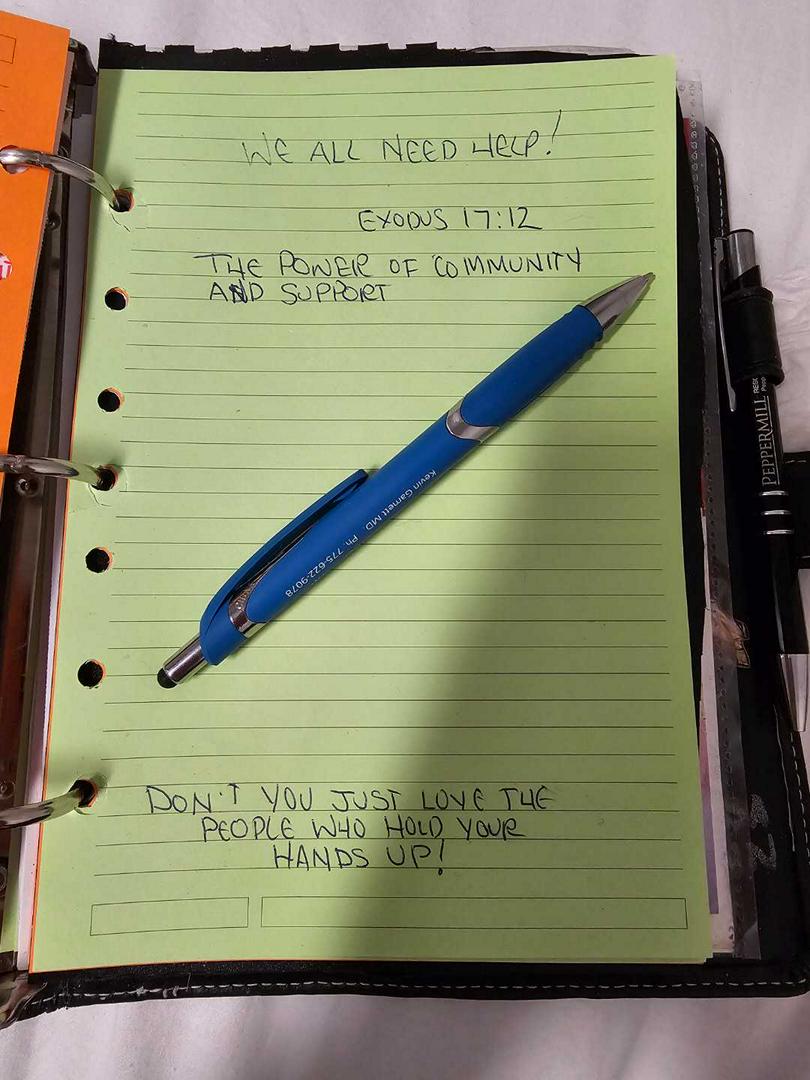 WE ALL NEED HELP!
EXODUS 17:12
THE POWER OF COMMUNITY
AND SUPPORT
Kevin Garnett MD Ph. 775-622-9078
PEPPERMILL
DON'T YOU JUST LOVE THE
PEOPLE WHO HOLD YOUR
HANDS UP!